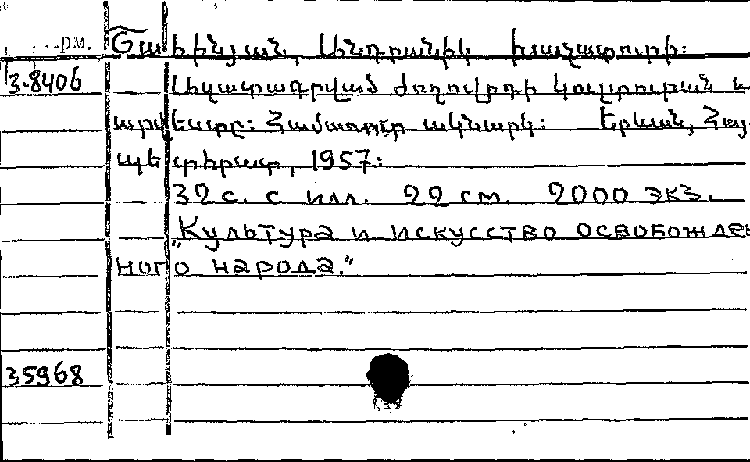 Շահինյան, Անդրանիկ Խաչատուրի:
3-8406 Ազատագրված ժողովրդի կուլտուրան և
արվեստը: Համառոտ ակնարկ: Երևան, Հայ-
պետհրատ, 1957:
32 с. с илл. 22 см. 2000 экз.
"Культура и искусство освобожден
ного народа."
35968